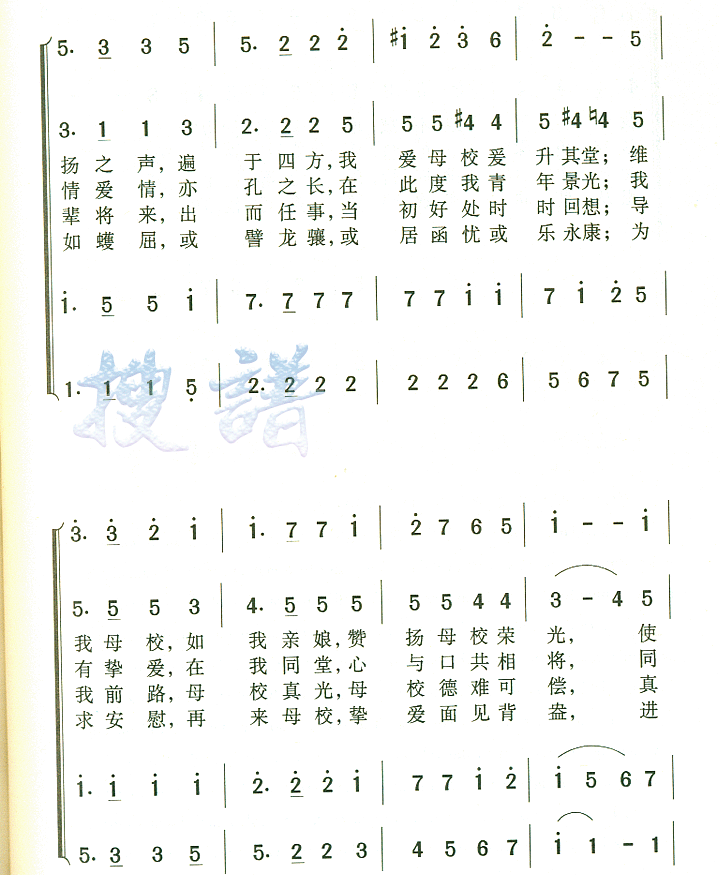 5. 3 3 5 | 5. 2 2 2̇ | #1̇ 2̇ 3̇ 6 | 2̇ - - 5 |
3. 1 1 3 | 2. 2 2 5 | 5 5 #4 4 | 5 #4 ♮4 5 |
扬之声,遍 于四方,我 爱母校爰 升其堂;维
情爱情,亦 孔之长,在 此度我青 年景光;我
辈将来,出 而任事,当 初好处时 时回想;导
如蠖屈,或 譬龙骧,或 居函忧或 乐永康;为
1̇. 5 5 1̇ | 7. 7 7 7 | 7 7 1̇ 1̇ | 7 1̇ 2̇ 5 |
1. 1 1 5̣ | 2. 2 2 2 | 2 2 2 6 | 5 6 7 5 |
搜谱
3̇. 3̇ 2̇ 1̇ | 1̇. 7 7 1̇ | 2̇ 7 6 5 | 1̇ - - 1̇ |
5. 5 5 3 | 4. 5 5 5 | 5 5 4 4 | 3 - 4 5 |
我母校,如 我亲娘,赞 扬母校荣 光, 使
有挚爱,在 我同堂,心 与口共相 将, 同
我前路,母 校真光,母 校德难可 偿, 真
求安慰,再 来母校,挚 爱面见背 盎, 进
1̇. 1̇ 1̇ 1̇ | 2̇. 2̇ 2̇ 1̇ | 7 7 1̇ 2̇ | 1̇ 5 6 7 |
5. 3 3 5 | 5. 2 2 3 | 4 5 6 7 | 1̇ 1 - 1 |